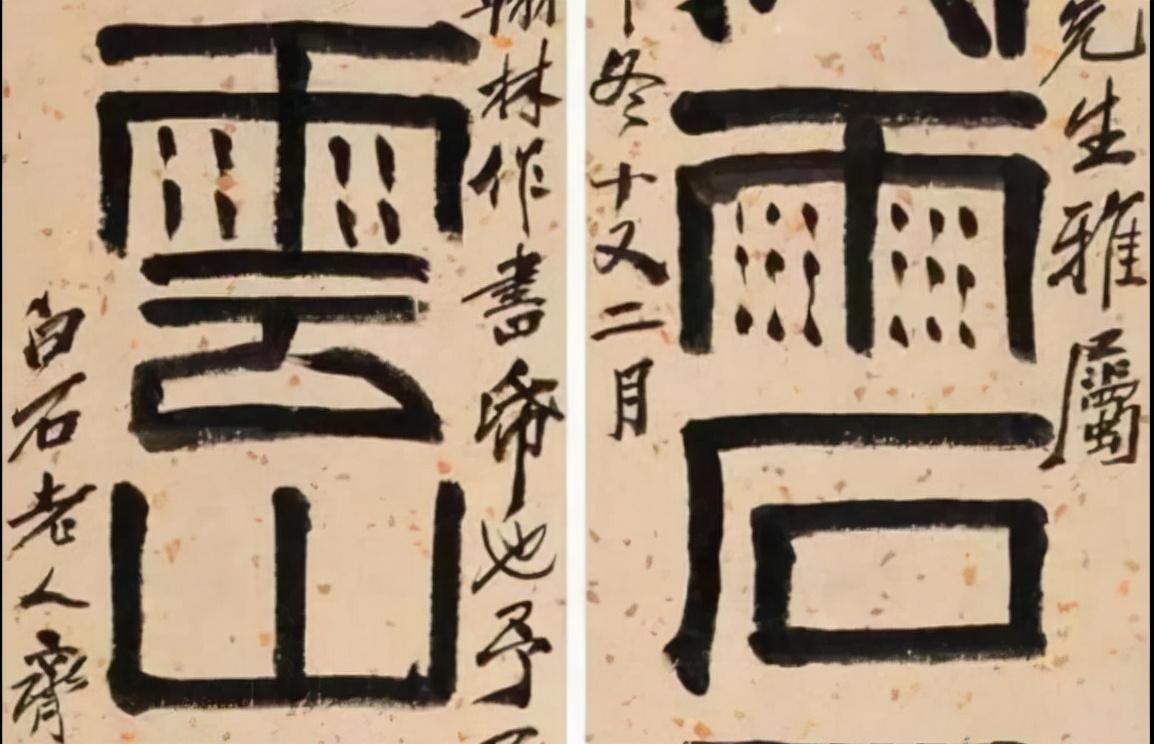 先生雅屬
雨石
冬十又二月
林作書也予
雲山
白石老人齊